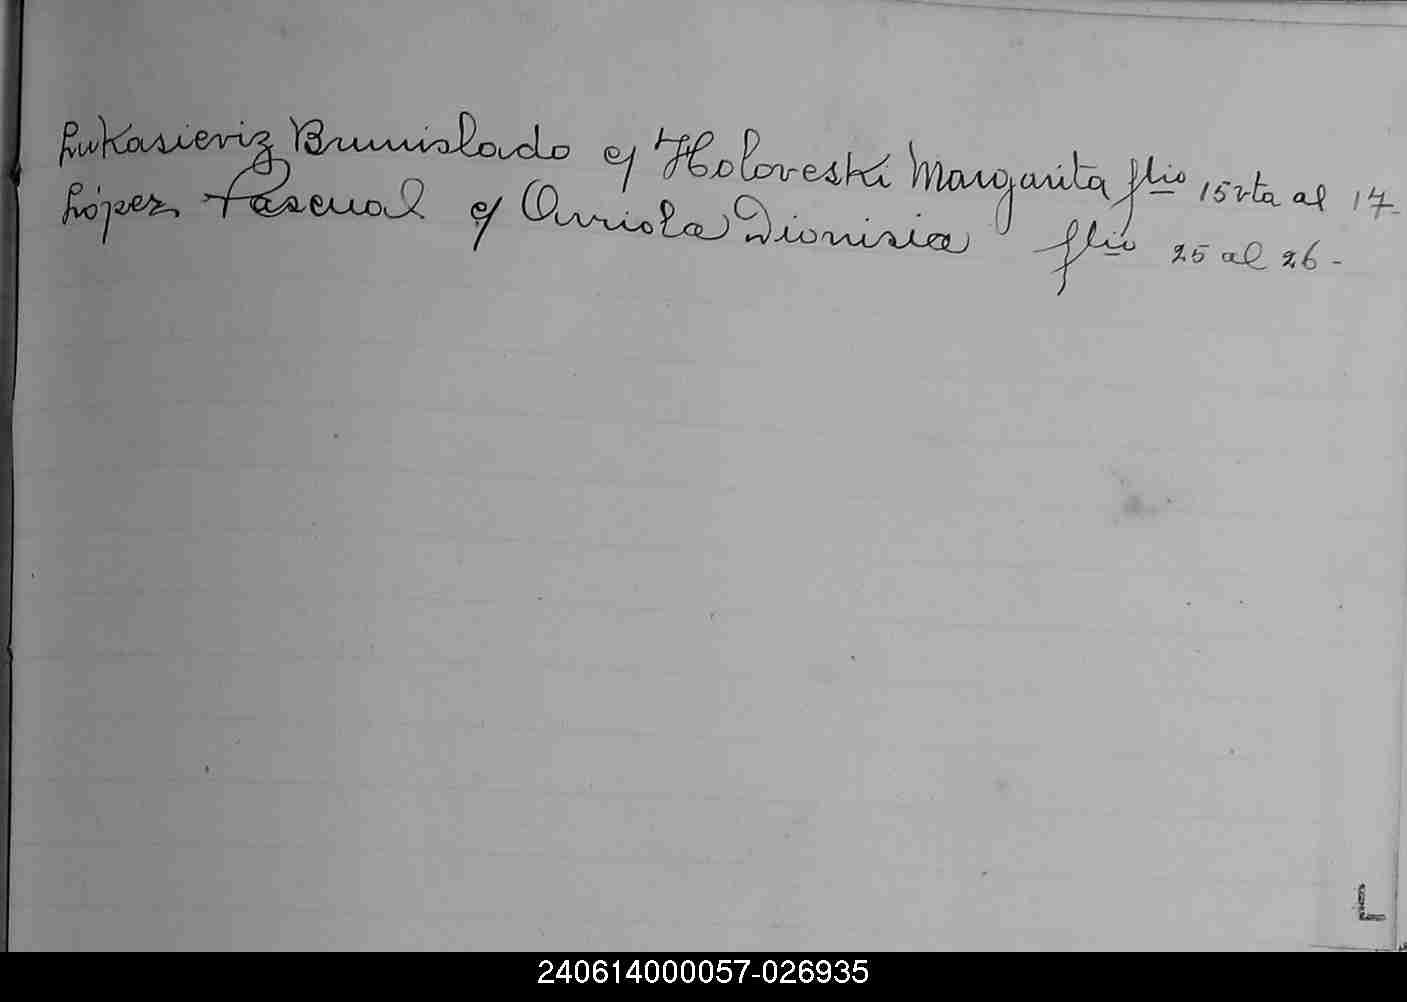 Lukasieviz Brunislado c/ Holoveski Margarita flio 15 vta al 17-
López Pascual c/ Arriola Dionisia flio 25 al 26-
L
240614000057-026935